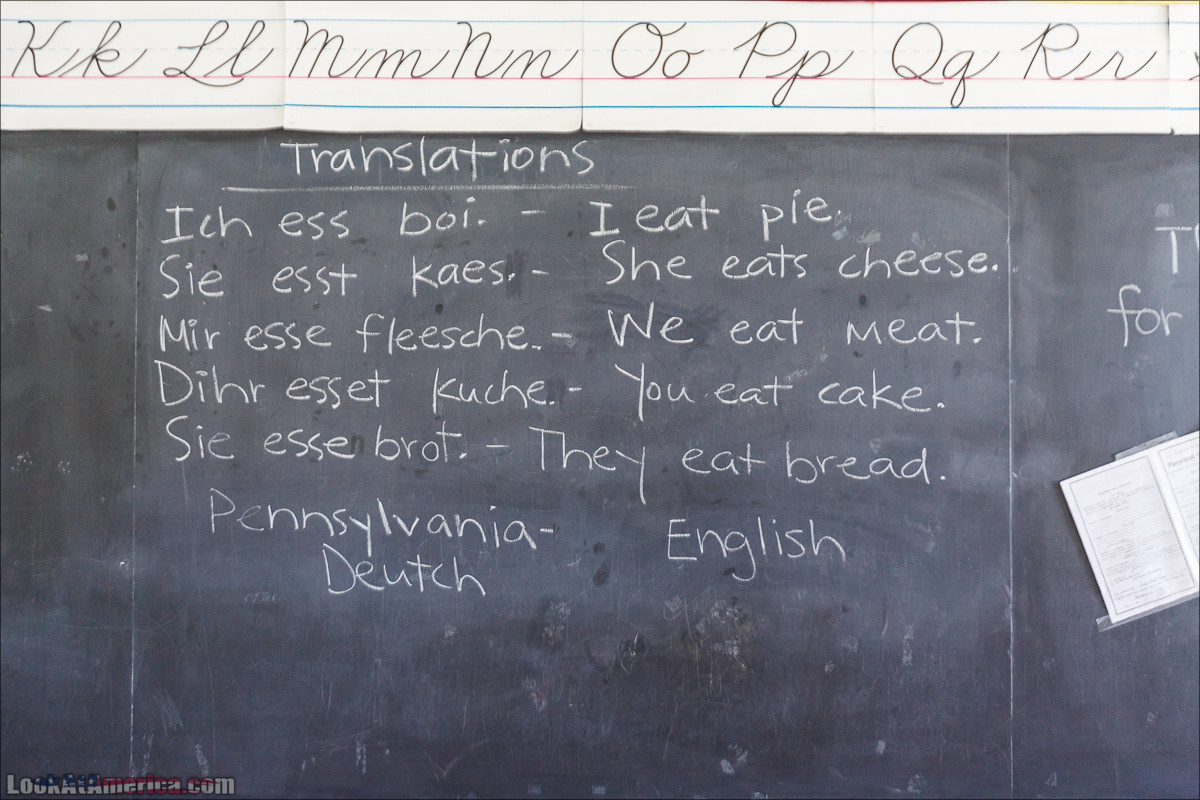 Kk Ll Mm Nn Oo Pp Qq Rr
Translations
Ich ess boi. - I eat pie.
Sie esst kaes. - She eats cheese.
Mir esse fleesche. - We eat meat.
Dihr esset kuche. - You eat cake.
Sie esse brot. - They eat bread.
Pennsylvania- English
Deutch
for
LookAtAmerica.com